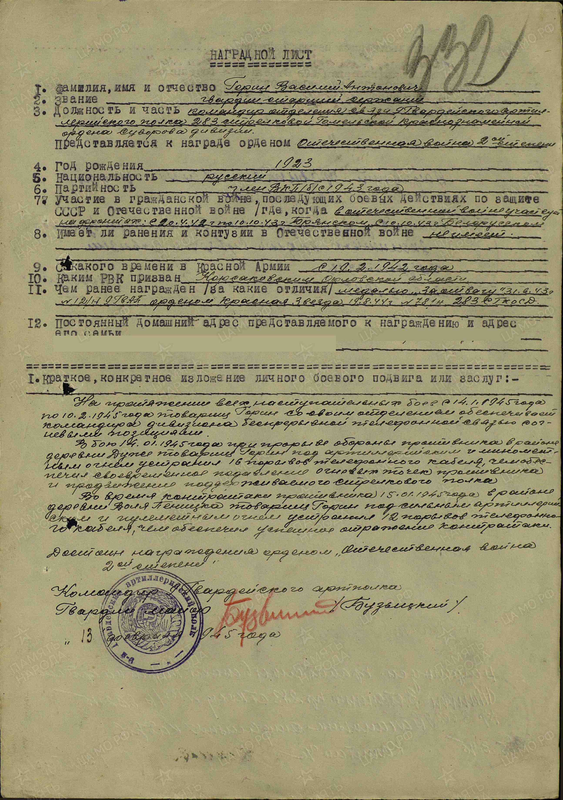 332
НАГРАДНОЙ ЛИСТ
1. Фамилия, имя и отчество Горин Василий Антонович
2. Звание гвардии старший сержант
3. Должность и часть командир отделения связи Гвардейского артил-
лерийского полка 283 стрелковой Гомельской Краснознаменной
ордена Суворова дивизии
Представляется к награде орденом Отечественная война 2ой степени
4. Год рождения 1923
5. Национальность русский
6. Партийность член ВКП/б/ с 1943 года
7. Участие в гражданской войне, последующих боевых действиях по защите
СССР и Отечественной войне /где, когда в отечественной войне участвует
на фронте с по 10.43г Брянском, с Белорусском
8. Имеет ли ранения и контузии в Отечественной войне не имеет.
9. С какого времени в Красной Армии с 19.2.1942 года
10. Каким РВК призван области
11. Чем ранее награжден /за какие отличия/ медалью "За отвагу"
орденом Красная Звезда 283 СГКОСД.
12. Постоянный домашний адрес представляемого к награждению и адрес
его семьи
1. Краткое, конкретное изложение личного боевого подвига или заслуг:-
На протяжении всех наступательных боев с 14.1.1945 года
по 10.2.1945 года товарищ Горин со своим отделением обеспечивал
командира дивизиона бесперерывной телефонной связью с ог-
невыми позициями.
В бою 14.01.1945 года при прорыве обороны противника в районе
деревни товарищ Горин под артиллерийским и миномет-
ным огнем устранил порывов телефонного кабеля, чем обес-
печил своевременное подавление огневых точек противника
и продвижение поддерживаемого стрелкового полка
Во время контратаки противника 15.01.1945 года в районе
деревни Воля товарищ Горин под сильным артиллерий-
ским и пулеметным огнем устранил 10 порывов телефонно-
го кабеля, чем обеспечил успешное отражение контратаки.
Достоин награждения орденом "Отечественная война
2ой степени"
Командир Гвардейского артполка
Гвардии майор /Бузвицкий/
"13 февраля 1945 года